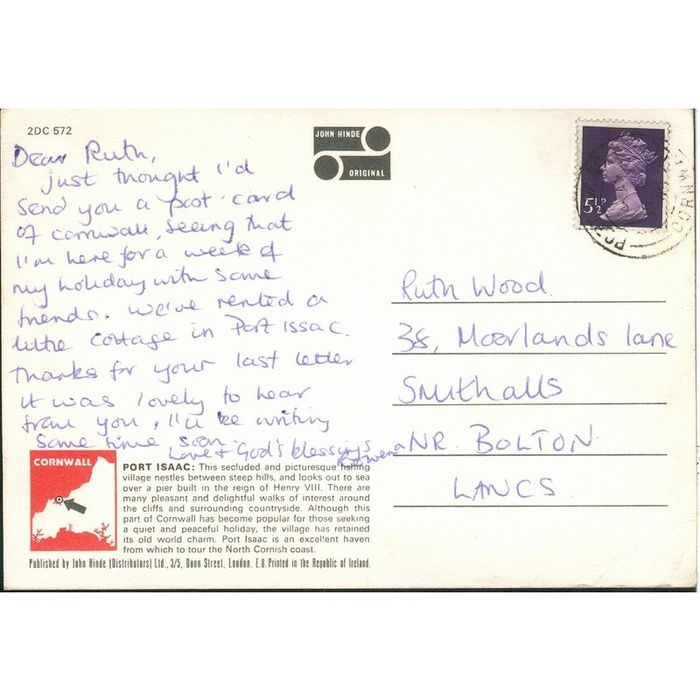 2DC 572
JOHN HINDE
ORIGINAL
5½P
CORNWALL
Dear Ruth,
Just thought I'd
send you a post-card
of cornwall, seeing that
I'm here for a week of
my holiday with some
friends. We've rented a
little cottage in Port Issac.
Thanks for your last letter
it was lovely to hear
from you, I'll be writing
some time soon.
Love + God's blessings
Rowena
Ruth Wood
38, Moorlands lane
Smithalls
NR. BOLTON.
LANCS.
CORNWALL
PORT ISAAC: This secluded and picturesque fishing
village nestles between steep hills, and looks out to sea
over a pier built in the reign of Henry VIII. There are
many pleasant and delightful walks of interest around
the cliffs and surrounding countryside. Although this
part of Cornwall has become popular for those seeking
a quiet and peaceful holiday, the village has retained
its old world charm. Port Isaac is an excellent haven
from which to tour the North Cornish coast.
Published by John Hinde (Distributors) Ltd., 3/5, Dunn Street, London. E.8. Printed in the Republic of Ireland.